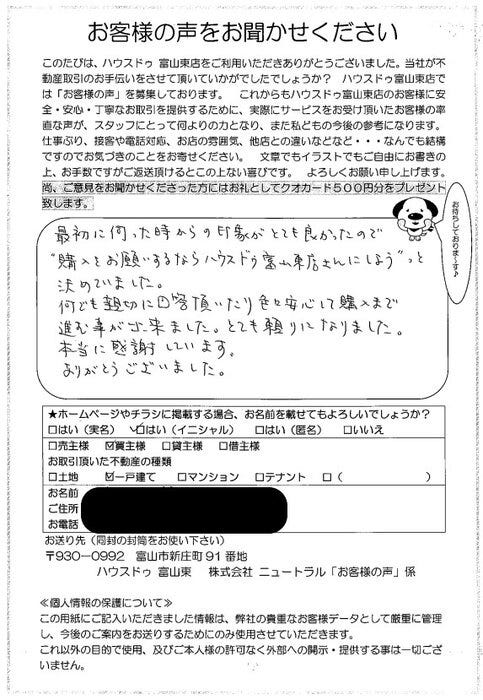 お客様の声をお聞かせください
このたびは、ハウスドゥ 富山東店をご利用いただきありがとうございました。当社が不
動産取引のお手伝いをさせて頂いていかがでしたでしょうか？　ハウスドゥ富山東店で
は「お客様の声」を募集しております。　これからもハウスドゥ富山東店のお客様に安
全・安心・丁寧なお取引を提供するために、実際にサービスをお受け頂いたお客様の率
直な声が、スタッフにとって何よりの力となり、また私どもの今後の参考になります。
仕事ぶり、接客や電話対応、お店の雰囲気、他店との違いなどなど・・・なんでも結構
ですのでお気づきのことをお寄せください。　文章でもイラストでもご自由にお書きの
上、お手数ですがご返送頂けるとこの上ない喜びです。　よろしくお願い申し上げます。
尚、ご意見をお聞かせくださった方にはお礼としてクオカード５００円分をプレゼント
致します。
お待ちしておりま～す♪
最初に伺った時からの印象がとても良かったので
“購入をお願いするならハウスドゥ富山東店さんにしよう”と
決めていました。
何でも親切に回答頂いたり色々安心して購入まで
進む事が出来ました。とても頼りになりました。
本当に感謝しています。
ありがとうございました。
★ホームページやチラシに掲載する場合、お名前を載せてもよろしいでしょうか？
□はい（実名）　☑はい（イニシャル）　□はい（匿名）　□いいえ
□売主様　☑買主様　□貸主様　□借主様
お取引頂いた不動産の種類
□土地　☑一戸建て　□マンション　□テナント　□（　　　　　　　）
お名前
ご住所
お電話
お送り先（同封の封筒をお使い下さい）
〒930-0992　富山市新庄町91番地
ハウスドゥ 富山東　株式会社 ニュートラル「お客様の声」係
≪個人情報の保護について≫
この用紙にご記入いただきました情報は、弊社の貴重なお客様データとして厳重に管理
し、今後のご案内をお送りするためにのみ使用させていただきます。
これ以外の目的で使用、及びご本人様の許可なく外部への開示・提供する事は一切ござ
いません。